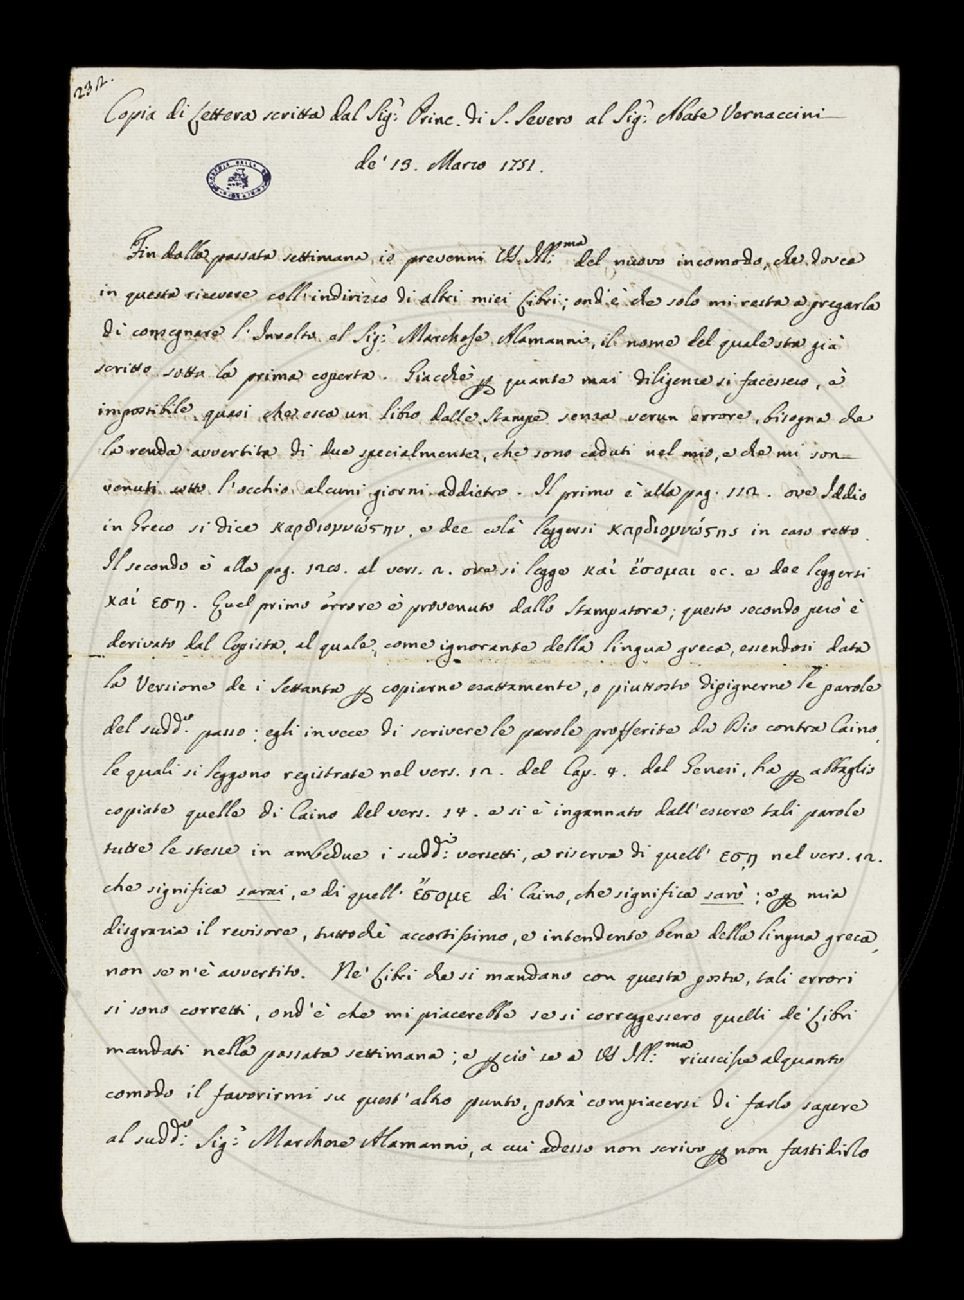 232.
Copia di Lettera scritta dal Sig.r Princ. di S. Severo al Sig.r Abate Vernaccini
de' 13. Marzo 1751.
Fin dalla passata settimana io prevenni VS. Ill.ma del nuovo incomodo, che dovea
in questa ricevere coll'indirizzo di altri miei Libri; ond'è che solo mi resta a pregarla
di consegnare l'Involto al Sig.r Marchese Alamanni, il nome del quale sta già
scritto sotto la prima coperta. Giacchè per quante mai diligenze si facessero, è
impossibile quasi che esca un libro dalle Stampe senza verun errore, bisogna che
la renda avvertita di due specialmente, che sono caduti nel mio, e che mi son
venuti sotto l'occhio alcuni giorni addietro. Il primo è alla pag. 112. ove Iddio
in Greco si dice καρδιογνώςην, e dee colà leggersi καρδιογνώςης in caso retto.
Il secondo è alla pag. 120. al vers. 2. ove si legge καί ἔσομαι ec. e dee leggersi
καί εση. Quel primo errore è provenuto dallo Stampatore; questo secondo però è
derivato dal Copista, al quale, come ignorante della lingua greca, essendosi data
la Versione de i Settanta per copiarne esattamente, o piuttosto dipignerne le parole
del sudd.o passo: egli invece di scrivere le parole profferite da Dio contra Caino,
le quali si leggono registrate nel vers. 12. del Cap. 4. del Genesi, ha per abbaglio
copiate quelle di Caino del vers. 14. e si è ingannato dall'essere tali parole
tutte le stesse in ambedue i sudd.i versetti, a riserva di quell' εση nel vers. 12.
che significa sarai, e di quell' ἔσομε di Caino, che significa sarò; e per mia
disgrazia il revisore, tuttochè accortissimo, e intendente bene della lingua greca,
non se n'è avvertito. Ne' Libri che si mandano con questa posta, tali errori
si sono corretti, ond'è che mi piacerebbe se si correggessero quelli de' Libri
mandati nella passata settimana; e perciò se a VS. Ill.ma riuscisse alquanto
comodo il favorirmi su quest'altro punto, potrà compiacersi di farlo sapere
al sudd.o Sig.r Marchese Alamanni, a cui adesso non scrivo per non fastidirlo